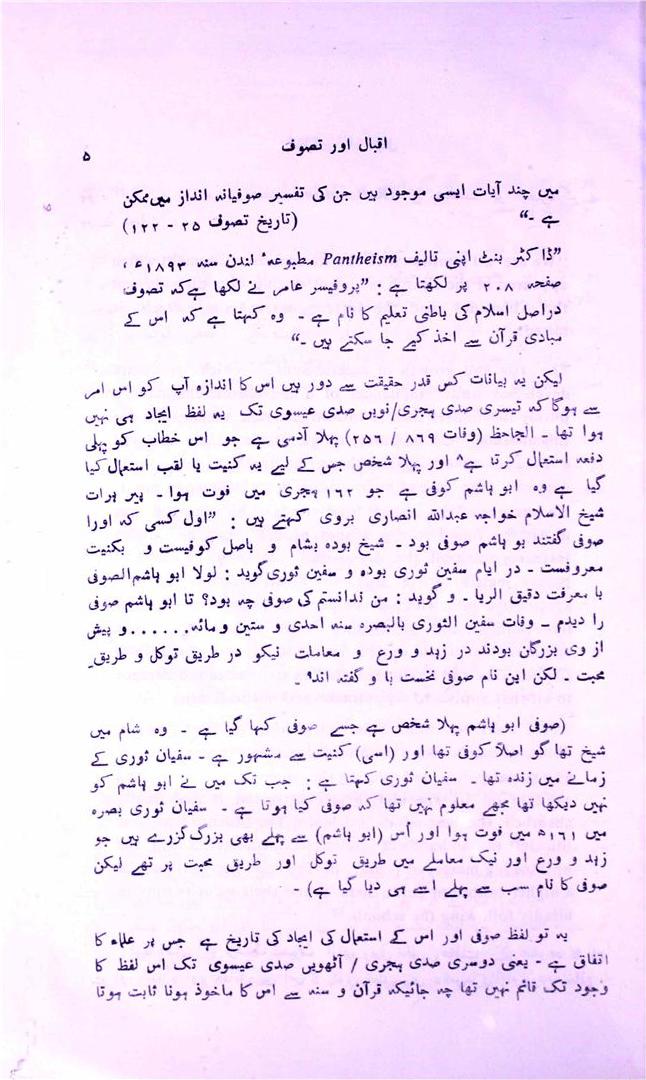 اقبال اور تصوف
۵
میں چند آیات ایسی موجود ہیں جن کی تفسیر صوفیانہ انداز میں ممکن
ہے ۔“ (تاریخ تصوف ۲۵ - ۱۲۲)
”ڈاکٹر بنٹ اپنی تالیف Pantheism مطبوعہٴ لندن سنہ ۱۸۹۳ء ،
صفحہ ۲۰۸ پر لکھتا ہے : ”پروفیسر عامر نے لکھا ہے کہ تصوف
دراصل اسلام کی باطنی تعلیم کا نام ہے ۔ وہ کہتا ہے کہ اس کے
مبادی قرآن سے اخذ کیے جا سکتے ہیں ۔“
لیکن یہ بیانات کس قدر حقیقت سے دور ہیں اس کا اندازہ آپ کو اس امر
سے ہوگا کہ تیسری صدی ہجری/نویں صدی عیسوی تک یہ لفظ ایجاد ہی نہیں
ہوا تھا ۔ الجاحظ (وفات ۸۶۹ / ۲۵۶) پہلا آدمی ہے جو اس خطاب کو پہلی
دفعہ استعمال کرتا ہے۸ اور پہلا شخص جس کے لیے یہ کنیت یا لقب استعمال کیا
گیا ہے وہ ابو ہاشم کوفی ہے جو ۱۶۲ ہجری میں فوت ہوا ۔ پیر ہرات
شیخ الاسلام خواجہ عبداللہ انصاری ہروی کہتے ہیں : ”اول کسی کہ اورا
صوفی گفتند بو ہاشم صوفی بود ۔ شیخ بودہ بشام و باصل کوفیست و بکنیت
معروفست ۔ در ایام سفین ثوری بودہ و سفین ثوری گوید : لولا ابو ہاشم الصوفی
با معرفت دقیق الریا ۔ و گوید : من ندانستم کی صوفی چہ بود؟ تا ابو ہاشم صوفی
را دیدم ۔ وفات سفین الثوری بالبصرہ سنہ احدی و ستین و مائہ......و پیش
از وی بزرگان بودند در زہد و ورع و معاملت نیکو در طریق توکل و طریق
محبت ۔ لکن این نام صوفی نخست با و گفتہ اند۹ ۔
(صوفی ابو ہاشم پہلا شخص ہے جسے صوفی کہا گیا ہے ۔ وہ شام میں
شیخ تھا گو اصلاً کوفی تھا اور (اسی) کنیت سے مشہور ہے ۔ سفیان ثوری کے
زمانے میں زندہ تھا ۔ سفیان ثوری کہتا ہے : جب تک میں نے ابو ہاشم کو
نہیں دیکھا تھا مجھے معلوم نہیں تھا کہ صوفی کیا ہوتا ہے ۔ سفیان ثوری بصرہ
میں ۱۶۱ھ میں فوت ہوا اور اُس (ابو ہاشم) سے پہلے بھی بزرگ گزرے ہیں جو
زہد و ورع اور نیک معاملے میں طریق توکل اور طریق محبت پر تھے لیکن
صوفی کا نام سب سے پہلے اسے ہی دیا گیا ہے) ۔
یہ تو لفظ صوفی اور اس کے استعمال کی ایجاد کی تاریخ ہے جس پر علماء کا
اتفاق ہے ۔ یعنی دوسری صدی ہجری / آٹھویں صدی عیسوی تک اس لفظ کا
وجود تک قائم نہیں تھا چہ جائیکہ قرآن و سنہ سے اس کا ماخوذ ہونا ثابت ہوتا